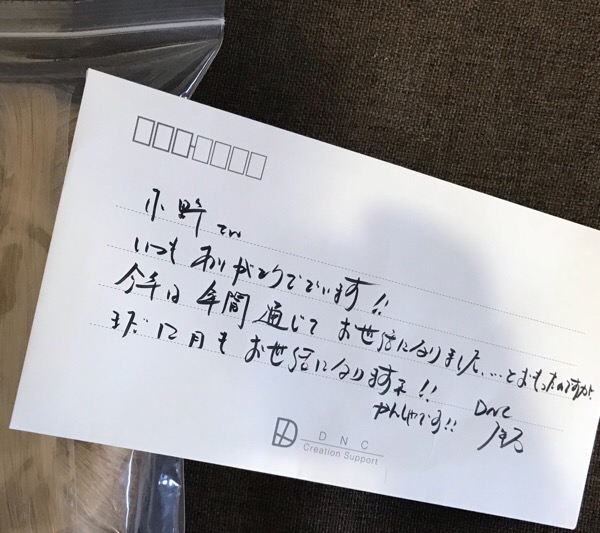 小野さん
いつもありがとうございます!!
今年は年間通じてお世話になりました…とおもったのですが、
まだ12月もお世話になります!!
かんしゃです!! DNC
DNC
Creation Support